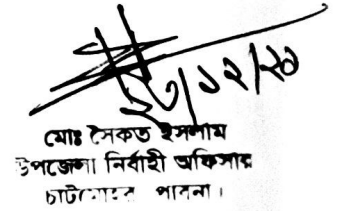 ১২/২০
মোঃ সৈকত ইসলাম
উপজেলা নির্বাহী অফিসার
চাটমোহর পাবনা।